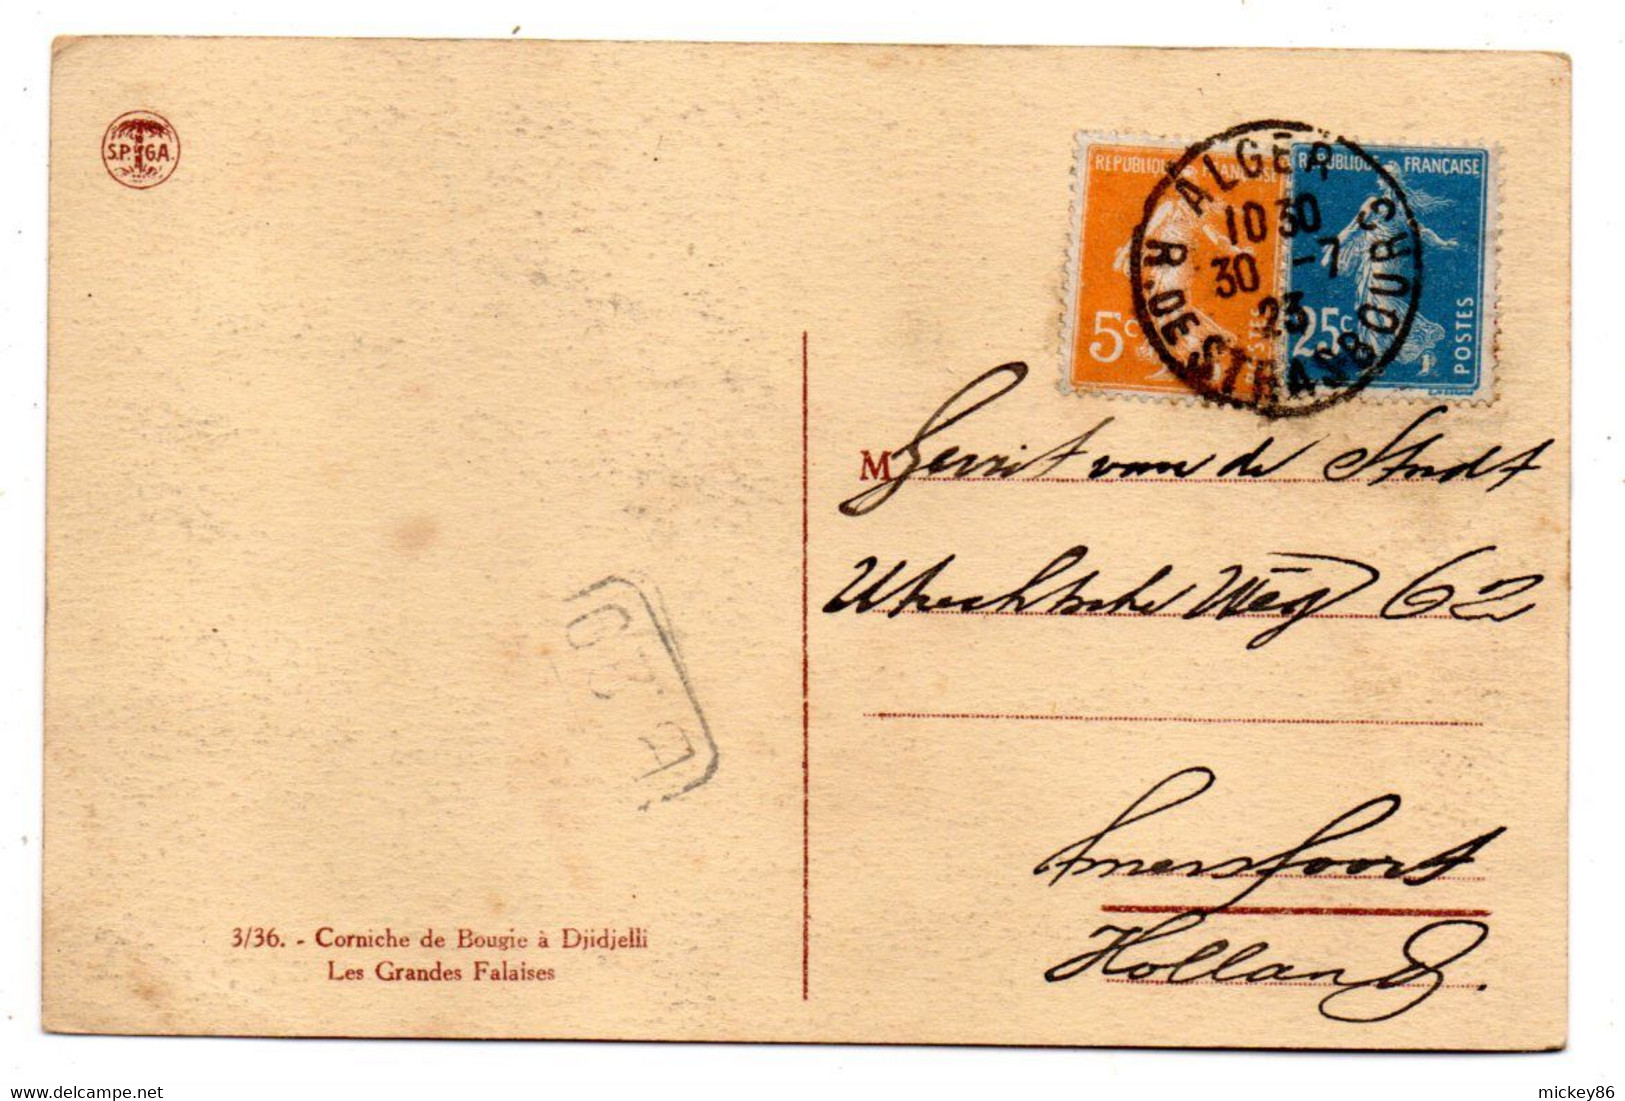 S.P. G.A.
RÉPUBLIQUE FRANÇAISE
5c
POSTES
RÉPUBLIQUE FRANÇAISE
25c
POSTES
ALGER
10 30
30 -7
23
R. DE STRASBOURG
M Gerrit van de Stadt
Utrechtsche Weg 62
Amersfoort
Holland.
3/36. - Corniche de Bougie à Djidjelli
Les Grandes Falaises
mickey86